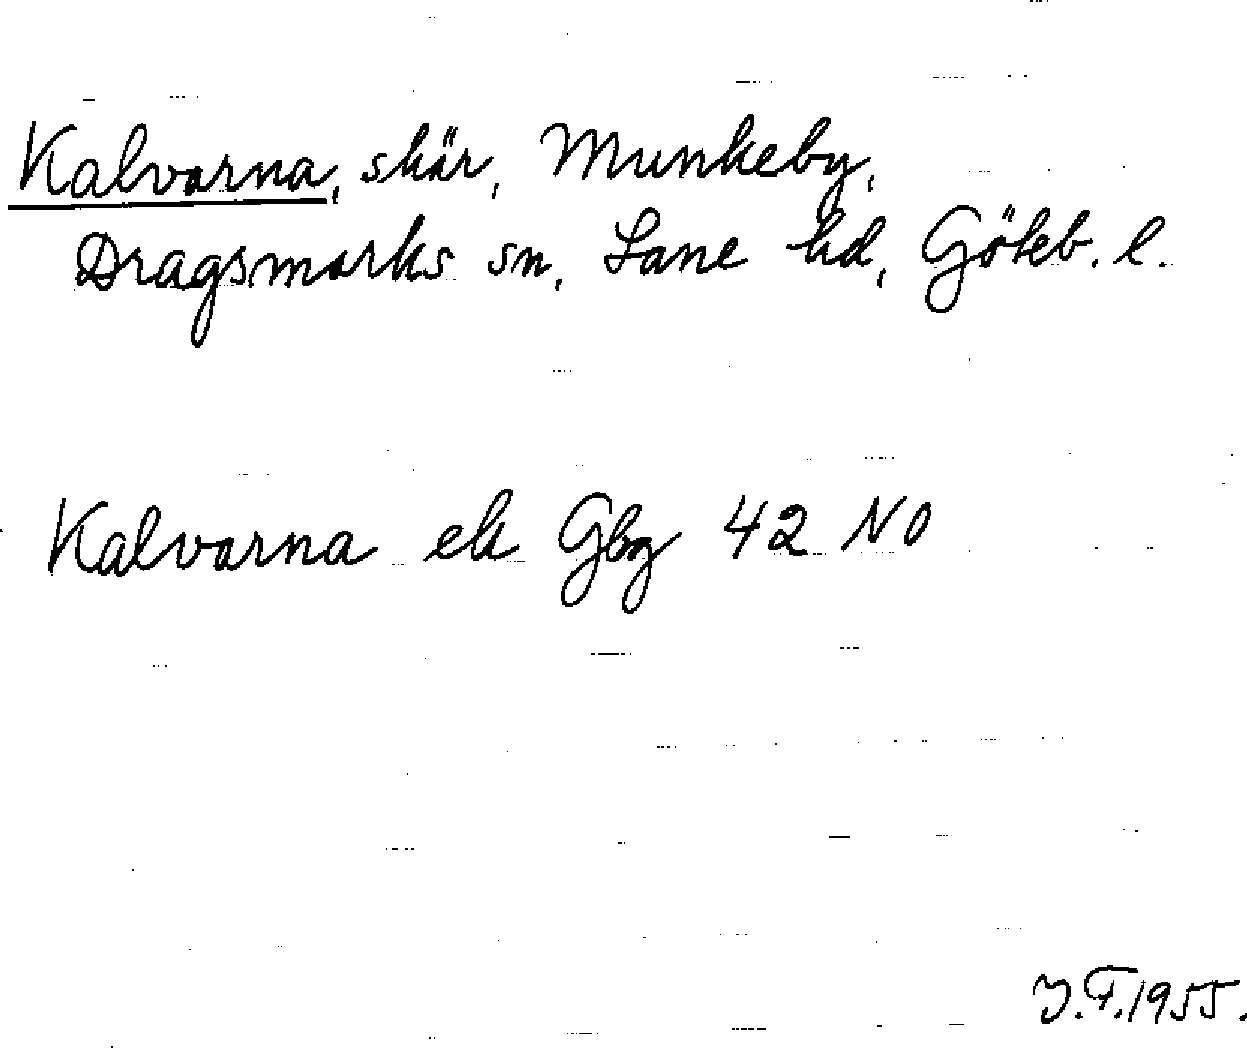 Kalvarna, skär, Munkeby,
Dragsmarks sn, Lane hd, Göteb. l.
Kalvarna ek Gbg 42 NO
J.F.1955.